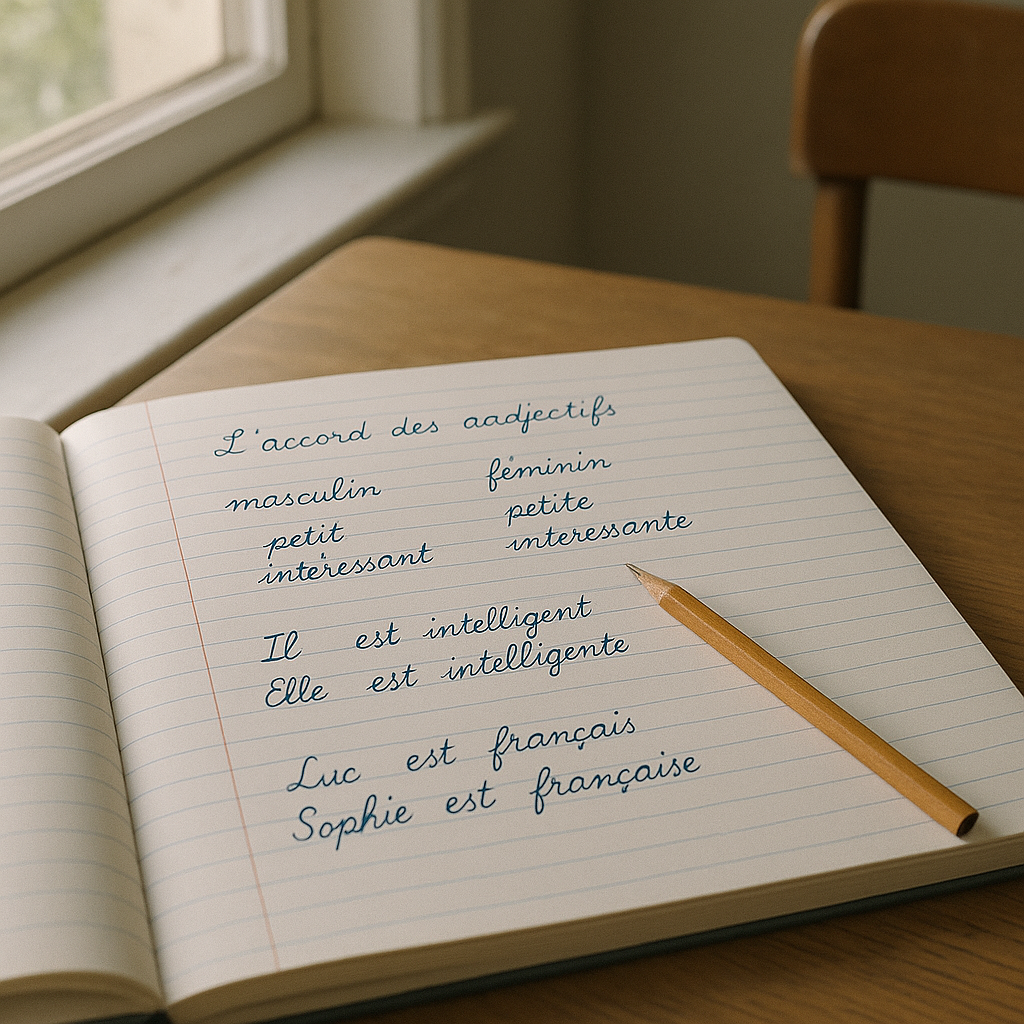 L'accord des aadjectifs
masculin féminin
petit petite
intéressant interessante
Il est intelligent
Elle est intelligente
Luc est français
Sophie est française